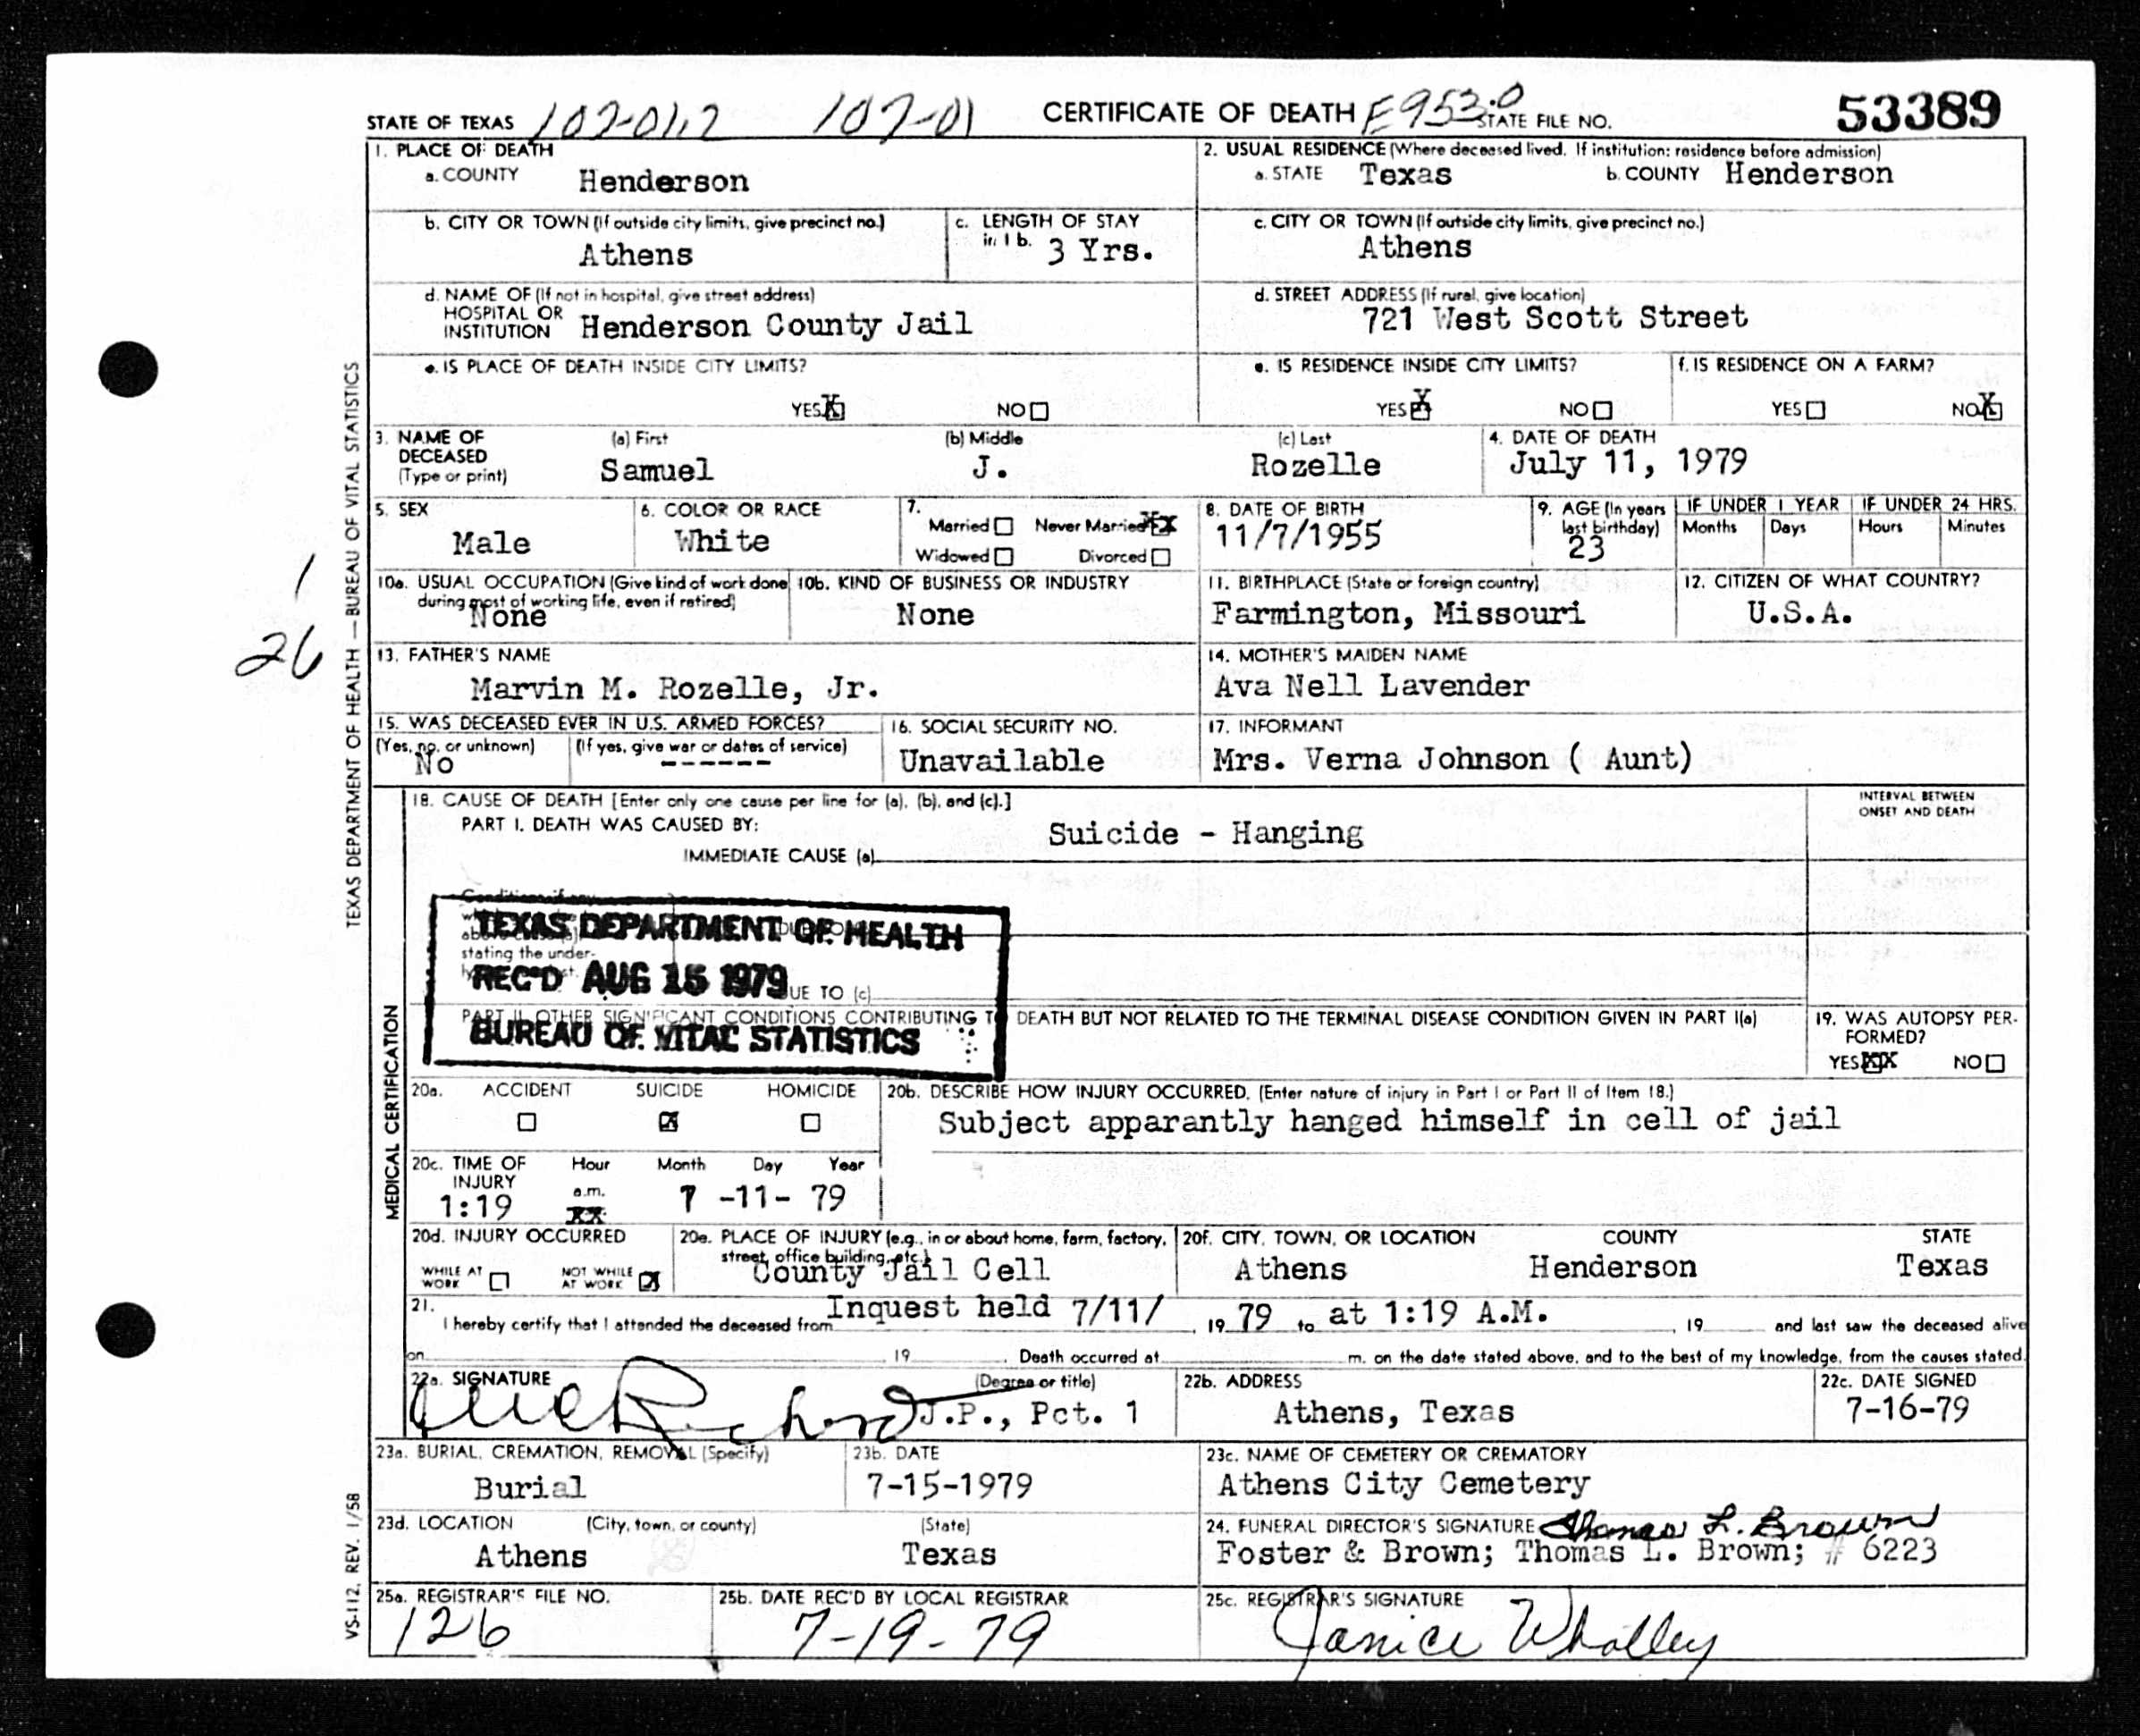 STATE OF TEXAS 107-01,2 107-01 CERTIFICATE OF DEATH E953.0 STATE FILE NO. 53389
1. PLACE OF DEATH
a. COUNTY Henderson
2. USUAL RESIDENCE (Where deceased lived. If institution: residence before admission)
a. STATE Texas b. COUNTY Henderson
b. CITY OR TOWN (If outside city limits, give precinct no.)
Athens
c. LENGTH OF STAY
in 1 b. 3 Yrs.
c. CITY OR TOWN (If outside city limits, give precinct no.)
Athens
d. NAME OF (If not in hospital, give street address)
HOSPITAL OR
INSTITUTION Henderson County Jail
d. STREET ADDRESS (If rural, give location)
721 West Scott Street
e. IS PLACE OF DEATH INSIDE CITY LIMITS?
YES X NO
e. IS RESIDENCE INSIDE CITY LIMITS?
YES X NO
f. IS RESIDENCE ON A FARM?
YES NO X
3. NAME OF DECEASED
(Type or print)
(a) First (b) Middle (c) Last
Samuel J. Rozelle
4. DATE OF DEATH
July 11, 1979
5. SEX
Male
6. COLOR OR RACE
White
7.
Married Never Married XX
Widowed Divorced
8. DATE OF BIRTH
11/7/1955
9. AGE (In years
last birthday)
23
IF UNDER 1 YEAR
Months Days
IF UNDER 24 HRS.
Hours Minutes
10a. USUAL OCCUPATION (Give kind of work done
during most of working life, even if retired)
None
10b. KIND OF BUSINESS OR INDUSTRY
None
11. BIRTHPLACE (State or foreign country)
Farmington, Missouri
12. CITIZEN OF WHAT COUNTRY?
U.S.A.
13. FATHER'S NAME
Marvin M. Rozelle, Jr.
14. MOTHER'S MAIDEN NAME
Ava Nell Lavender
15. WAS DECEASED EVER IN U.S. ARMED FORCES?
(Yes, no, or unknown) (If yes, give war or dates of service)
No ------
16. SOCIAL SECURITY NO.
Unavailable
17. INFORMANT
Mrs. Verna Johnson ( Aunt)
18. CAUSE OF DEATH [Enter only one cause per line for (a), (b), and (c).]
PART I. DEATH WAS CAUSED BY:
IMMEDIATE CAUSE (a) Suicide - Hanging
INTERVAL BETWEEN
ONSET AND DEATH
Conditions, if any,
stating the under-
TEXAS DEPARTMENT OF HEALTH
REC'D AUG 15 1979
BUREAU OF VITAL STATISTICS
DUE TO (c)
PART II. OTHER SIGNIFICANT CONDITIONS CONTRIBUTING TO DEATH BUT NOT RELATED TO THE TERMINAL DISEASE CONDITION GIVEN IN PART I(a)
19. WAS AUTOPSY PER-
FORMED?
YES XX NO
20a. ACCIDENT SUICIDE HOMICIDE
X
20b. DESCRIBE HOW INJURY OCCURRED. (Enter nature of injury in Part I or Part II of Item 18.)
Subject apparantly hanged himself in cell of jail
20c. TIME OF
INJURY
Hour Month Day Year
1:19 a.m. xx 7 -11- 79
20d. INJURY OCCURRED
WHILE AT
WORK
NOT WHILE
AT WORK X
20e. PLACE OF INJURY (e.g., in or about home, farm, factory,
street, office building, etc.)
County Jail Cell
20f. CITY, TOWN, OR LOCATION COUNTY STATE
Athens Henderson Texas
21.
I hereby certify that I attended the deceased from Inquest held 7/11/, 19 79 to at 1:19 A.M., 19 and last saw the deceased alive
on 19 . Death occurred at m. on the date stated above, and to the best of my knowledge, from the causes stated.
22a. SIGNATURE (Degree or title)
J.P., Pct. 1
22b. ADDRESS
Athens, Texas
22c. DATE SIGNED
7-16-79
23a. BURIAL, CREMATION, REMOVAL (Specify)
Burial
23b. DATE
7-15-1979
23c. NAME OF CEMETERY OR CREMATORY
Athens City Cemetery
23d. LOCATION (City, town, or county) (State)
Athens Texas
24. FUNERAL DIRECTOR'S SIGNATURE Thomas L. Brown
Foster & Brown; Thomas L. Brown; # 6223
25a. REGISTRAR'S FILE NO.
126
25b. DATE REC'D BY LOCAL REGISTRAR
7-19-79
25c. REGISTRAR'S SIGNATURE
Janice Wholley
TEXAS DEPARTMENT OF HEALTH — BUREAU OF VITAL STATISTICS
MEDICAL CERTIFICATION
VS-112, REV. 1/58
1
26